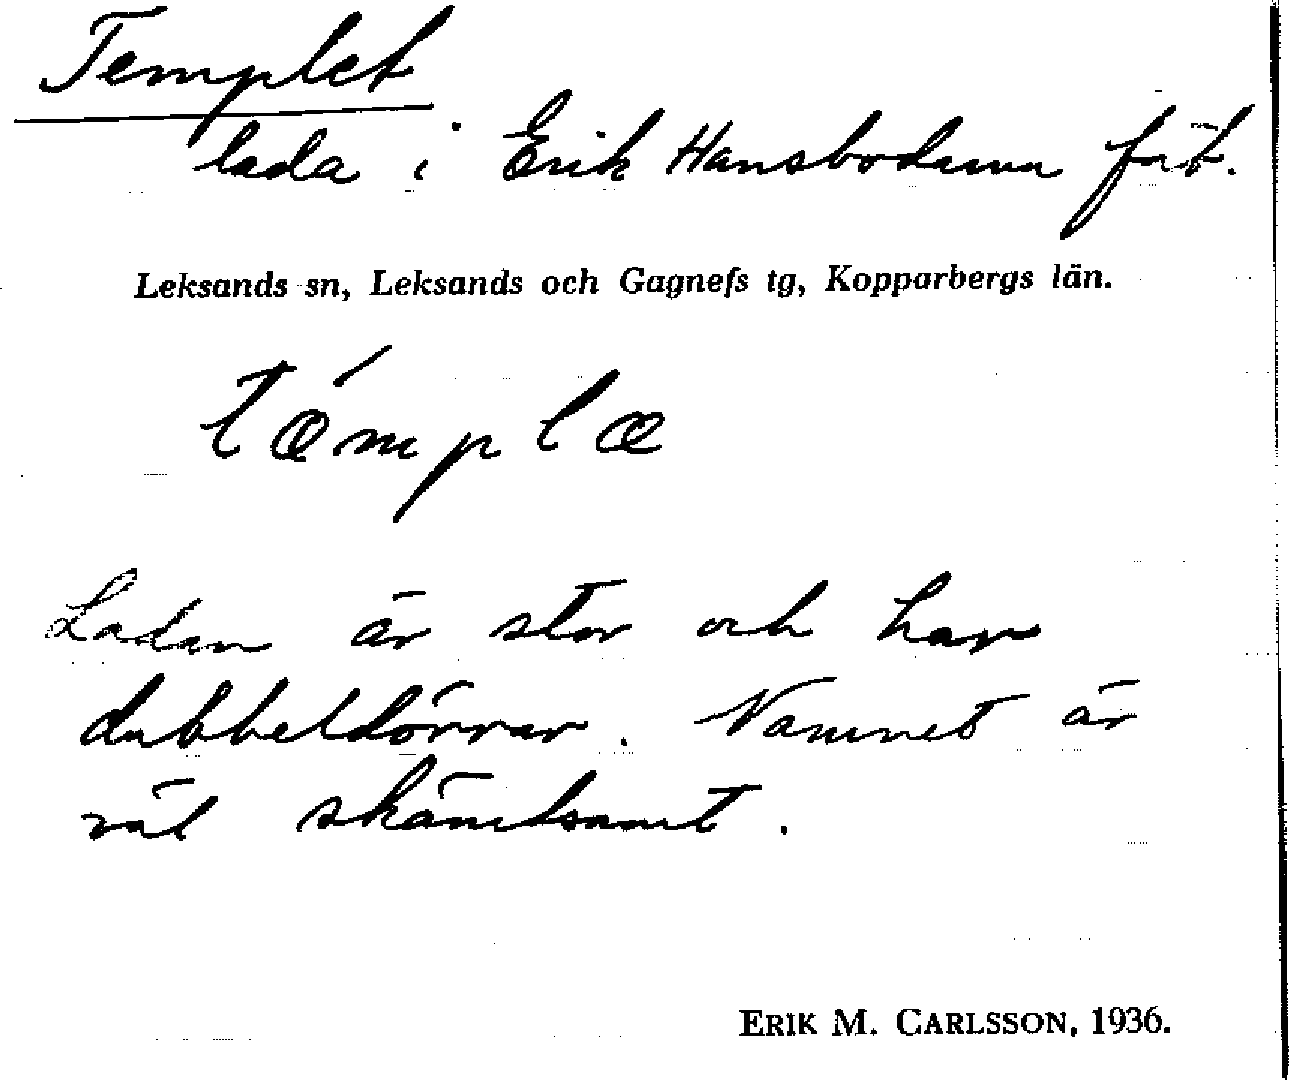 Templet
lada i Erik Hansbodarna fäb.
Leksands sn, Leksands och Gagnefs tg, Kopparbergs län.
tǽmplæ
Ladan är stor och har
dubbeldörrar. Namnet är
väl skämtsamt.
ERIK M. CARLSSON, 1936.